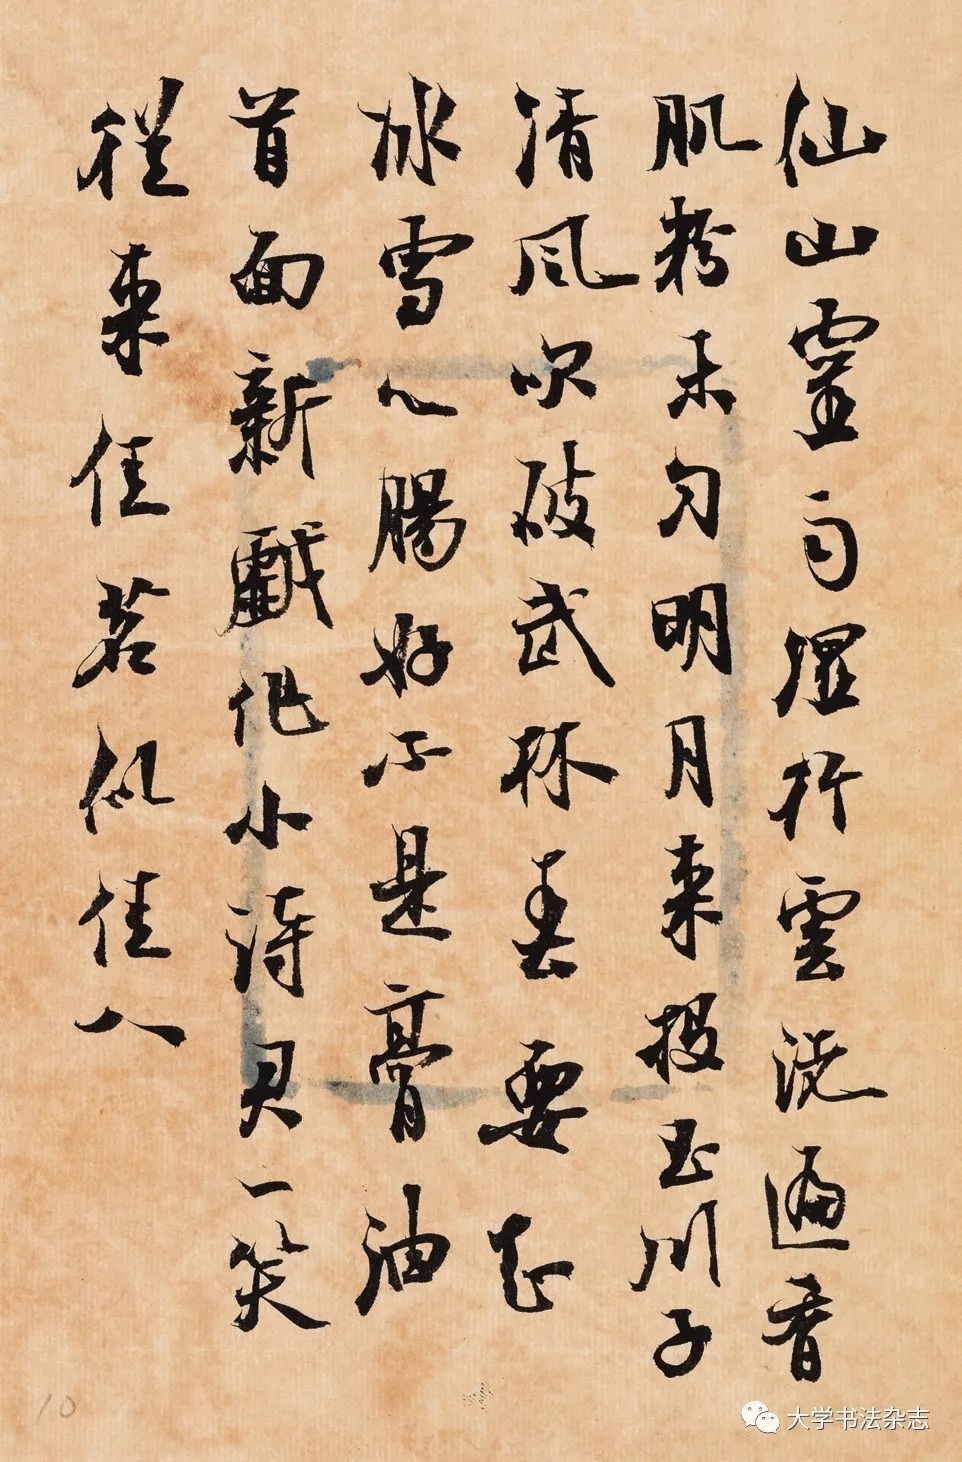 仙山靈雨濕行雲洗遍香
肌粉未勻明月來投玉川子
清風吹破武林春要知
冰雪心腸好不是膏油
首面新戲作小詩君一笑
從來佳茗似佳人
10
大学书法杂志